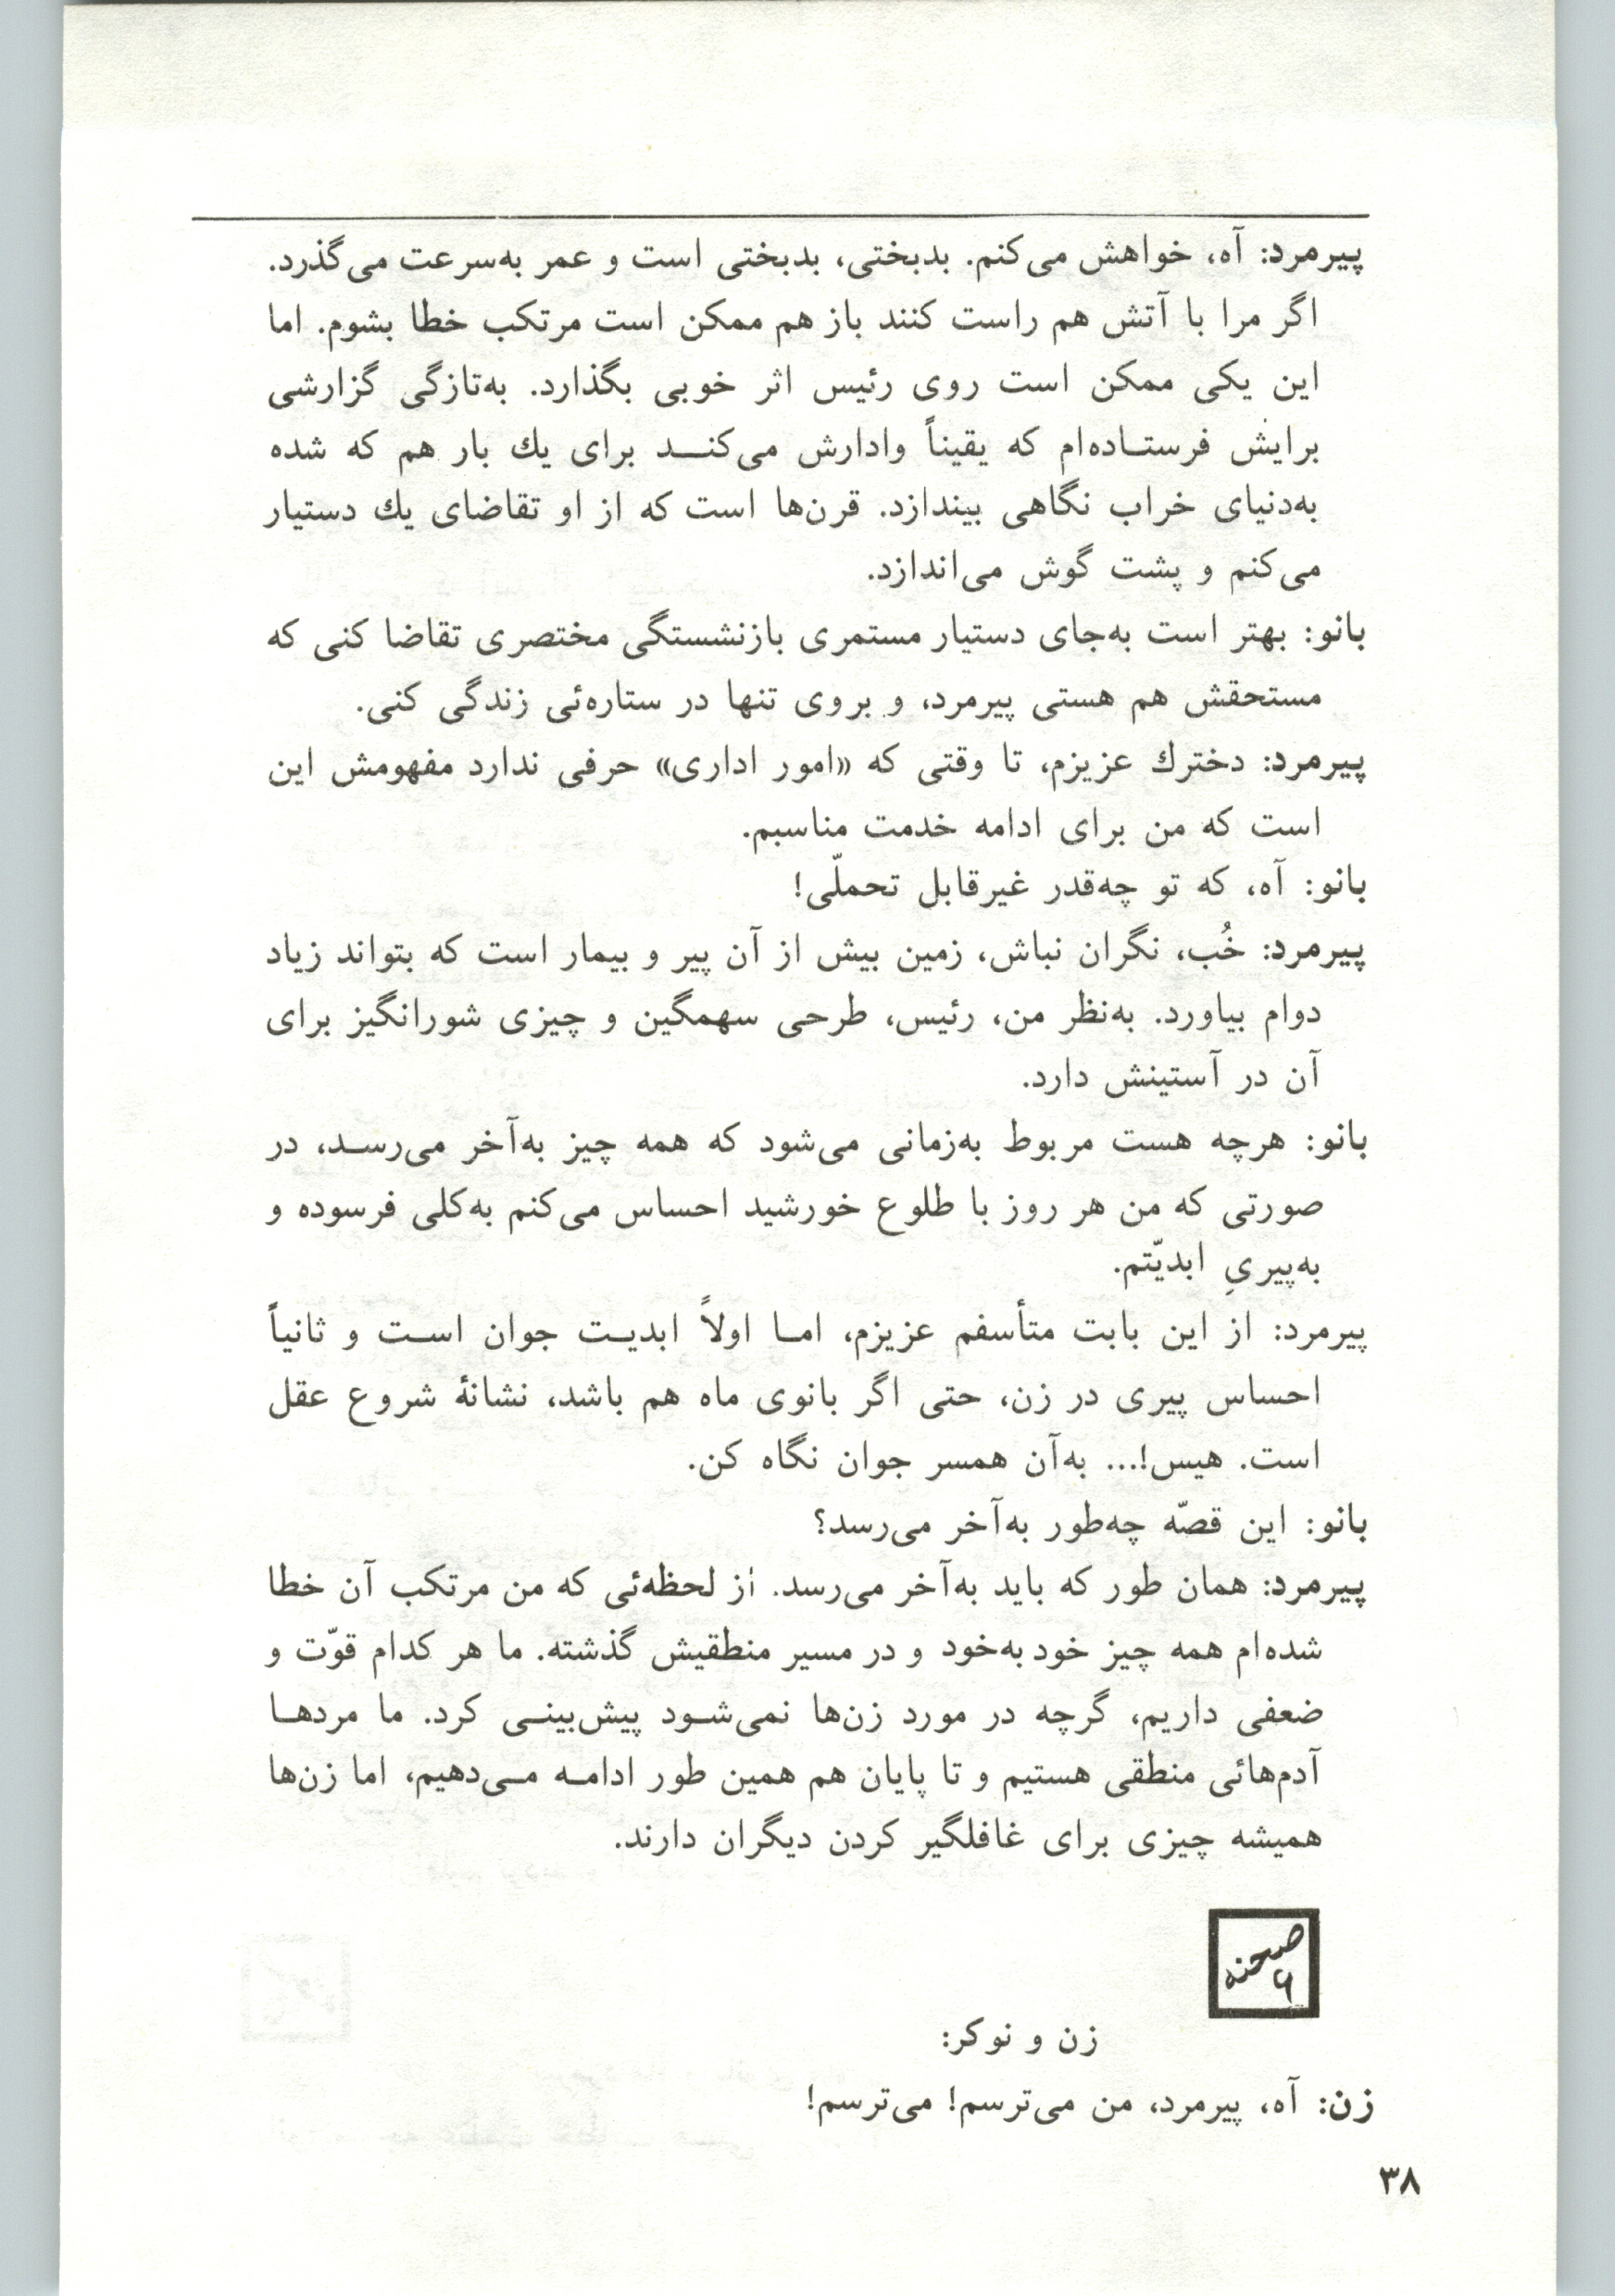 پیرمرد: آه، خواهش می‌کنم. بدبختی، بدبختی است و عمر به‌سرعت می‌گذرد.
اگر مرا با آتش هم راست کنند باز هم ممکن است مرتکب خطا بشوم. اما
این یکی ممکن است روی رئیس اثر خوبی بگذارد. به‌تازگی گزارشی
برایش فرستاده‌ام که یقیناً وادارش می‌کند برای یك بار هم که شده
به‌دنیای خراب نگاهی بیندازد. قرن‌ها است که از او تقاضای یك دستیار
می‌کنم و پشت گوش می‌اندازد.
بانو: بهتر است به‌جای دستیار مستمری بازنشستگی مختصری تقاضا کنی که
مستحقش هم هستی پیرمرد، و بروی تنها در ستاره‌ئی زندگی کنی.
پیرمرد: دخترك عزیزم، تا وقتی که «امور اداری» حرفی ندارد مفهومش این
است که من برای ادامه خدمت مناسبم.
بانو: آه، که تو چه‌قدر غیرقابل تحملّی!
پیرمرد: خُب، نگران نباش، زمین بیش از آن پیر و بیمار است که بتواند زیاد
دوام بیاورد. به‌نظر من، رئیس، طرحی سهمگین و چیزی شورانگیز برای
آن در آستینش دارد.
بانو: هرچه هست مربوط به‌زمانی می‌شود که همه چیز به‌آخر می‌رسد، در
صورتی که من هر روز با طلوع خورشید احساس می‌کنم به‌کلی فرسوده و
به‌پیریِ ابدیّتم.
پیرمرد: از این بابت متأسفم عزیزم، اما اولاً ابدیت جوان است و ثانیاً
احساس پیری در زن، حتی اگر بانوی ماه هم باشد، نشانهٔ شروع عقل
است. هیس!... به‌آن همسر جوان نگاه کن.
بانو: این قصّه چه‌طور به‌آخر می‌رسد؟
پیرمرد: همان طور که باید به‌آخر می‌رسد. از لحظه‌ئی که من مرتکب آن خطا
شده‌ام همه چیز خود به‌خود و در مسیر منطقیش گذشته. ما هر کدام قوّت و
ضعفی داریم، گرچه در مورد زن‌ها نمی‌شود پیش‌بینی کرد. ما مردها
آدم‌هائی منطقی هستیم و تا پایان هم همین طور ادامه می‌دهیم، اما زن‌ها
همیشه چیزی برای غافلگیر کردن دیگران دارند.
صحنه
۶
زن و نوکر:
زن: آه، پیرمرد، من می‌ترسم! می‌ترسم!
۳۸